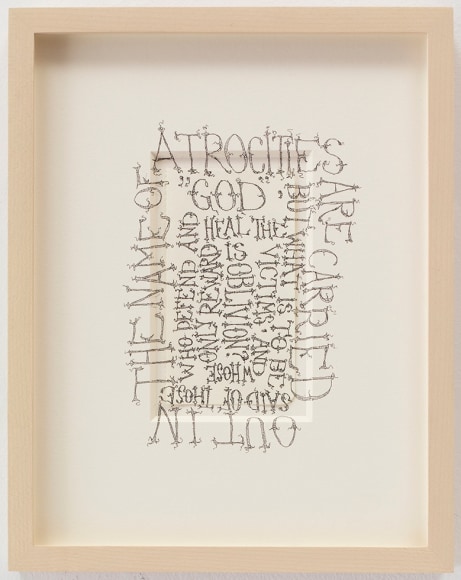 ATROCITIES
ARE CARRIED
OUT IN
THE NAME OF
"GOD"
BUT WHAT IS TO BE
SAID OF THOSE
WHO DEFEND AND
HEAL THE
VICTIMS AND
WHOSE
ONLY REWARD
IS OBLIVION?